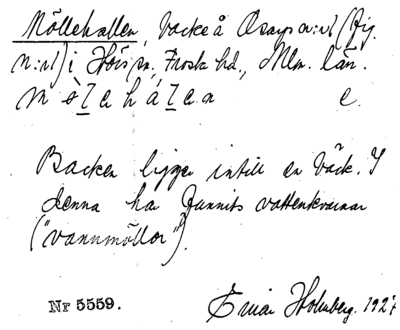 Möllehallen, backe å Osaps nr:1 (fig.
n:r1) i Hörs sn, Frosta hd., Mlm. län.
m ö̀ l e h á l e n e.
Backen ligger intill en bäck. I
denna har funnits vattenkvarnar
("vannmöllor").
Nr 5559.
Einar Holmberg. 1927